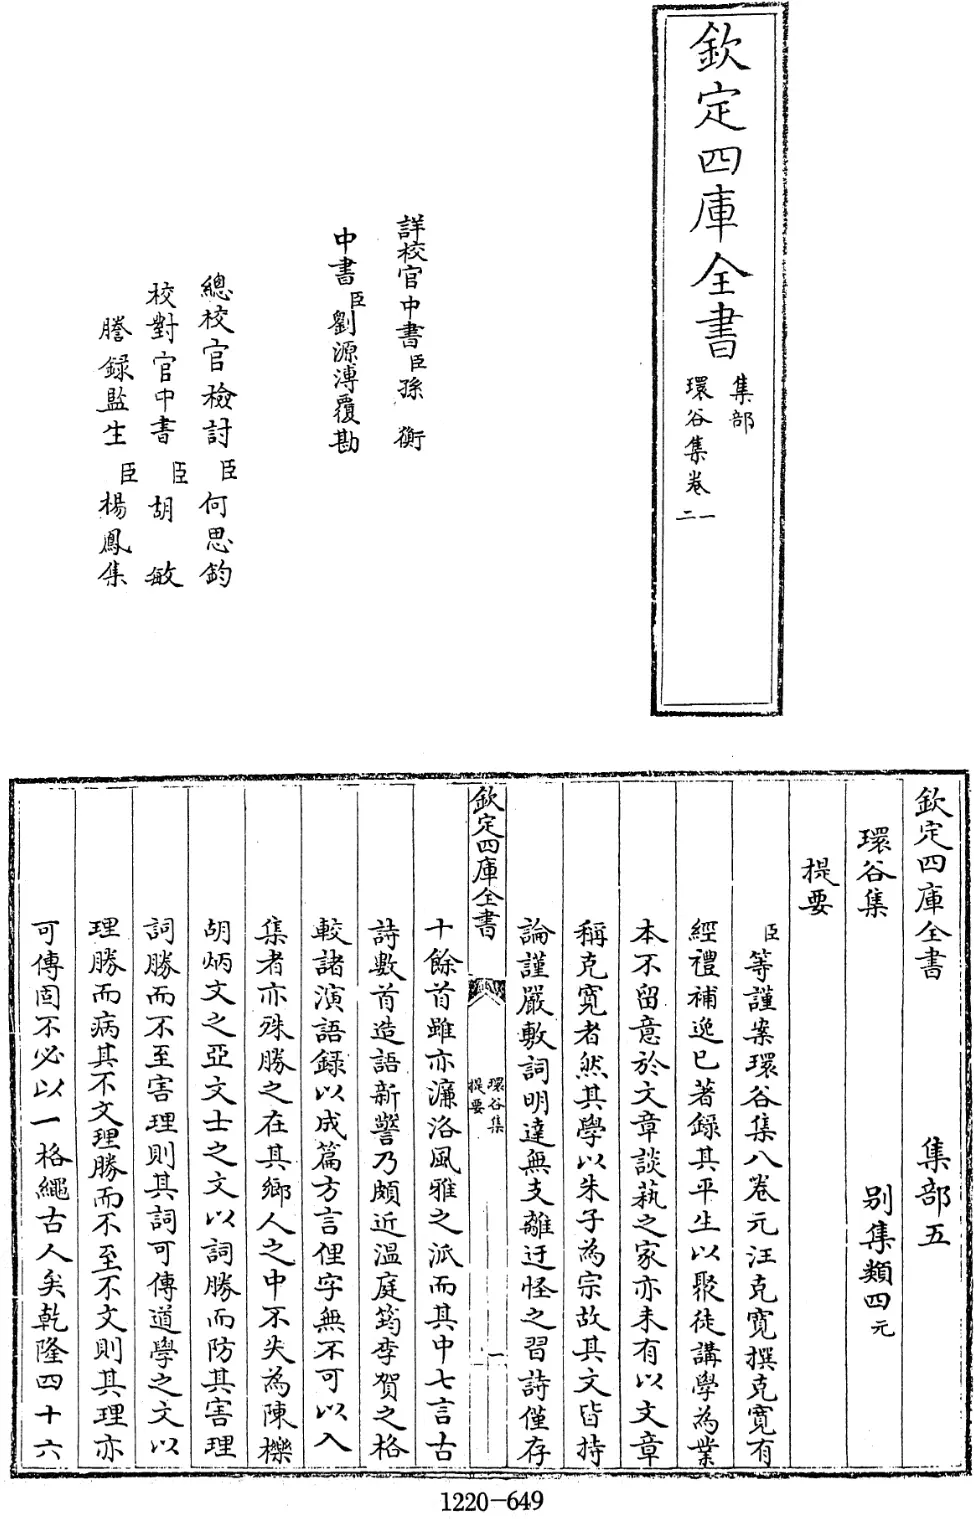 欽定四庫全書
集部
環谷集卷一二
詳校官中書臣孫衡
中書臣劉源溥覆勘
總校官檢討臣何思鈞
校對官中書臣胡敏
謄録監生臣楊鳳集
欽定四庫全書　集部五
環谷集　別集類四元
提要
臣等謹案環谷集八卷元汪克寬撰克寬有
經禮補逸已著錄其平生以聚徒講學為業
本不留意於文章談藝之家亦未有以文章
稱克寬者然其學以朱子為宗故其文皆持
論謹嚴敷詞明達無支離迂怪之習詩僅存
欽定四庫全書
環谷集
提要
一
十餘首雖亦濂洛風雅之派而其中七言古
詩數首造語新警乃頗近溫庭筠李賀之格
較諸演語録以成篇方言俚字無不可以入
集者亦殊勝之在其鄉人之中不失為陳櫟
胡炳文之亞文士之文以詞勝而防其害理
詞勝而不至害理則其詞可傳道學之文以
理勝而病其不文理勝而不至不文則其理亦
可傳固不必以一格繩古人矣乾隆四十六
1220-649